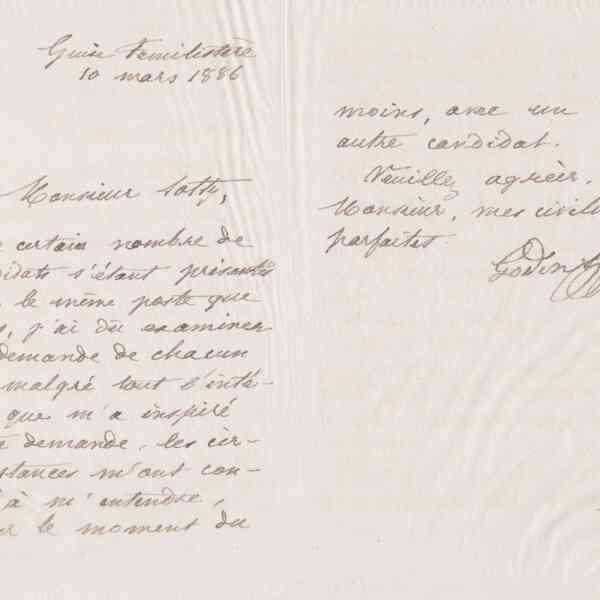 Guise Familistère
10 mars 1886
Monsieur Sotty,
certain nombre de
didats s'étant présentés
le même poste que
s, j'ai dû examiner
demande de chacun
malgré tout l'inté-
que m'a inspiré
e demande, les cir-
stances m'ont con-
à m'entendre,
r le moment du
moins, avec un
autre candidat.
Veuillez agréer,
Monsieur, mes civili
parfaites.
Godin